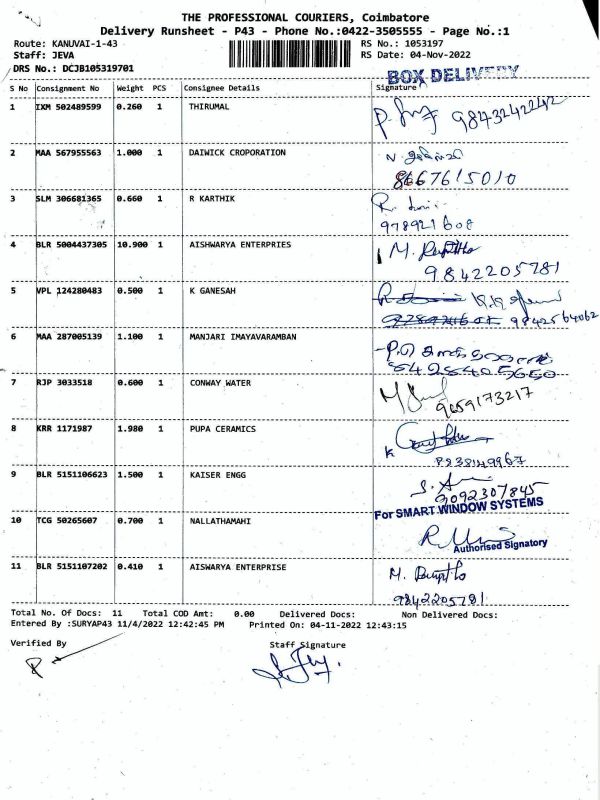 THE PROFESSIONAL COURIERS, Coimbatore
Delivery Runsheet - P43 - Phone No.:0422-3505555 - Page No.:1
Route: KANUVAI-1-43 RS No.: 1053197
Staff: JEVA RS Date: 04-Nov-2022
DRS No.: DCJB105319701
BOX DELIVERY
S No Consignment No Weight PCS Consignee Details Signature
1 IXM 502489599 0.260 1 THIRUMAL
9843242242
2 MAA 567955563 1.000 1 DAIWICK CROPORATION
8667615010
3 SLM 306681365 0.660 1 R KARTHIK
R.
978921608
4 BLR 5004437305 10.900 1 AISHWARYA ENTERPRIES
M.
9842205781
5 VPL 124280483 0.500 1 K GANESAH
9842564062
6 MAA 287005139 1.100 1 MANJARI IMAYAVARAMBAN
7 RJP 3033518 0.600 1 CONWAY WATER
9659173217
8 KRR 1171987 1.980 1 PUPA CERAMICS
9 BLR 5151106623 1.500 1 KAISER ENGG
9092307845
For SMART WINDOW SYSTEMS
10 TCG 50265607 0.700 1 NALLATHAMAHI
Authorised Signatory
11 BLR 5151107202 0.410 1 AISWARYA ENTERPRISE
M.
9842205781
Total No. Of Docs: 11 Total COD Amt: 0.00 Delivered Docs: Non Delivered Docs:
Entered By :SURYAP43 11/4/2022 12:42:45 PM Printed On: 04-11-2022 12:43:15
Verified By Staff Signature